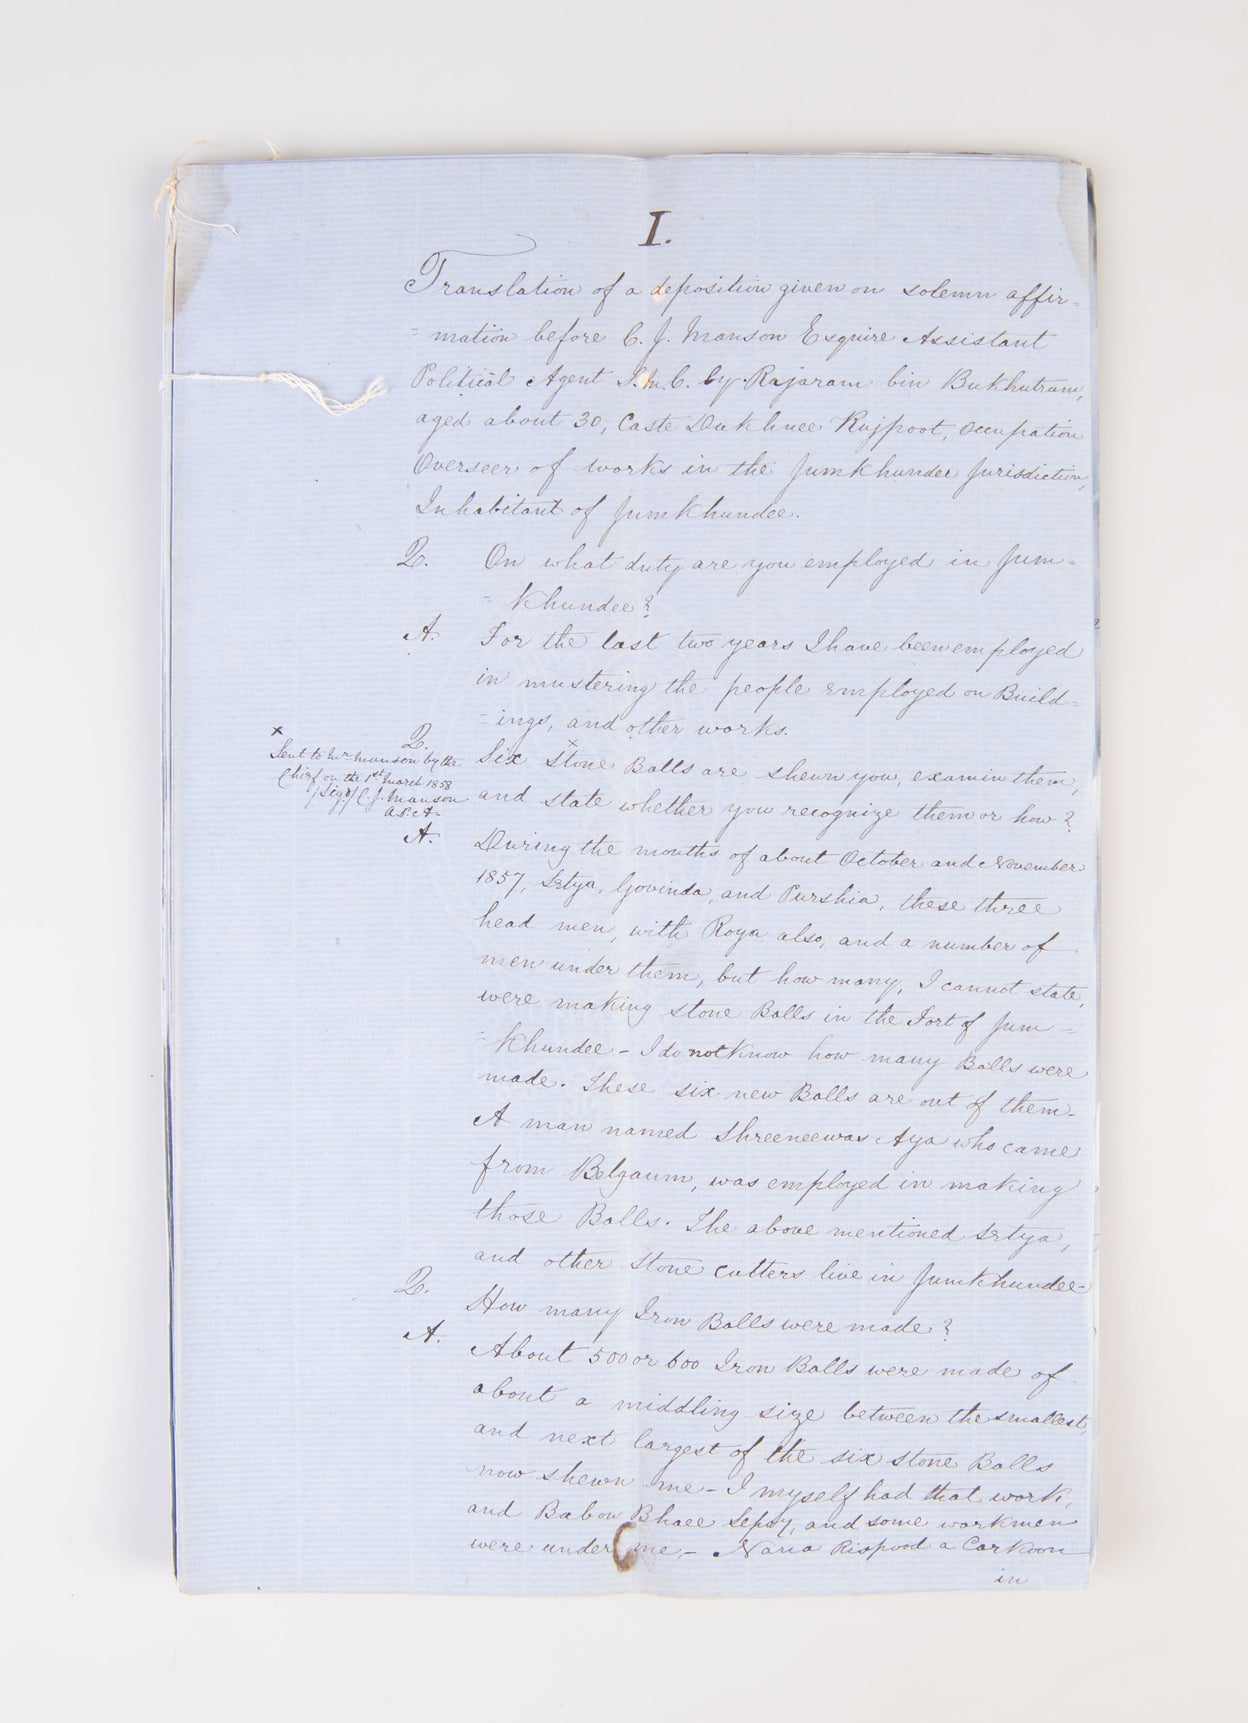 I.
Translation of a deposition given on solemn affir=
=mation before C. J. Manson Esquire Assistant
Political Agent S.M.C. by Rajaram bin Bukhutram,
aged about 30, Caste Dukhnee Rujpoot, Occupation
Overseer of works in the Jumkhundee Jurisdiction,
Inhabitant of Jumkhundee.
Q. On what duty are you employed in Jum=
=khundee?
A. For the last two years I have been employed
in mustering the people employed on Build=
=ings, and other works.
Q. Six ×Stone Balls are shewn you, examin them,
and state whether you recognize them or how?
×
Sent to Mr Manson by the
Chief on the 1st March 1858
/Sigd/ C. J. Manson
A.P.A.
A. During the months of about October and November
1857, Setya, Govinda, and Purshia, these three
head men, with Roya also, and a number of
men under them, but how many, I cannot state,
were making stone Balls in the Fort of Jum=
=khundee – I do not know how many Balls were
made. These six new Balls are out of them–
A man named Shreeneewas Aya who came
from Belgaum, was employed in making
those Balls. The above mentioned Setya,
and other Stone cutters live in Jumkhundee–
Q. How many Iron Balls were made?
A. About 500 or 600 Iron Balls were made of
about a middling size between the smallest,
and next largest of the six stone Balls
now shewn me – I myself had that work,
and Baboo Bhaee and some workmen
were under me, – Nana Rispood a Carkoon
in